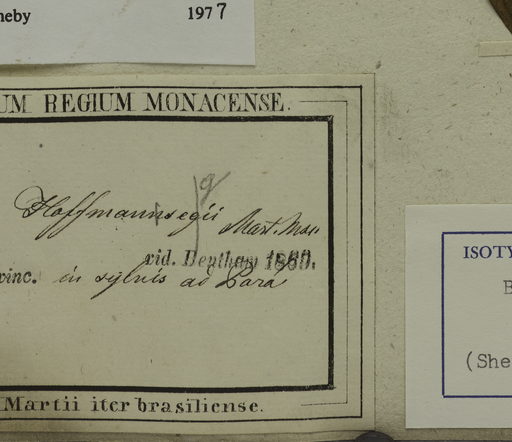 neby 1977
UM REGIUM MONACENSE.
Hoffmannsegii Mart. Msc.
vid. Bentham 1860.
vinc. in sylvis ad Para
Martii iter brasiliense.
ISOTY
B
(She